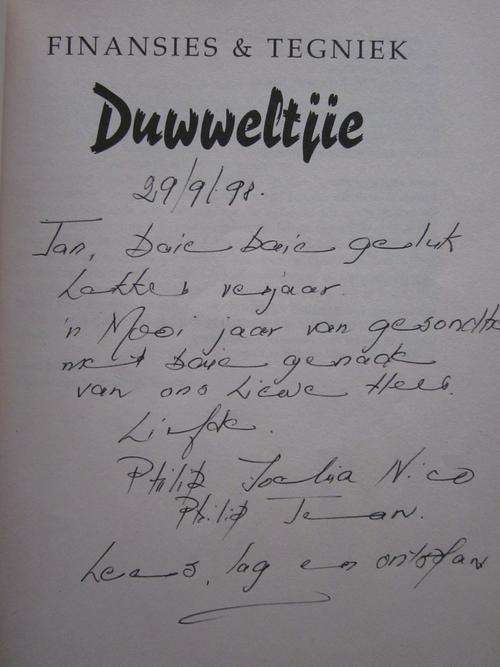 FINANSIES & TEGNIEK
Duwweltjie
29/9/98.
Jan, Baie baie geluk
Lekker verjaar.
'n Mooi jaar van gesondhe
met baie genade
van ons Liewe Heer.
Liefde.
Philip Nico
Philip
Lees, lag en ontspan